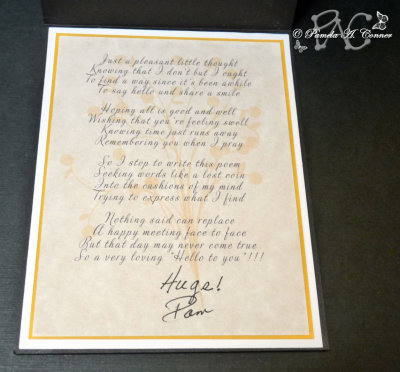 © Pamela A. Conner
Just a pleasant little thought
Knowing that I don't but I ought
To find a way since it's been awhile
To say hello and share a smile
Hoping all is good and well
Wishing that you're feeling swell
Knowing time just runs away
Remembering you when I pray
So I stop to write this poem
Seeking words like a lost coin
Into the cushions of my mind
Trying to express what I find
Nothing said can replace
A happy meeting face to face
But that day may never come true
So a very loving "Hello to you"!!!
Hugs!
Pam